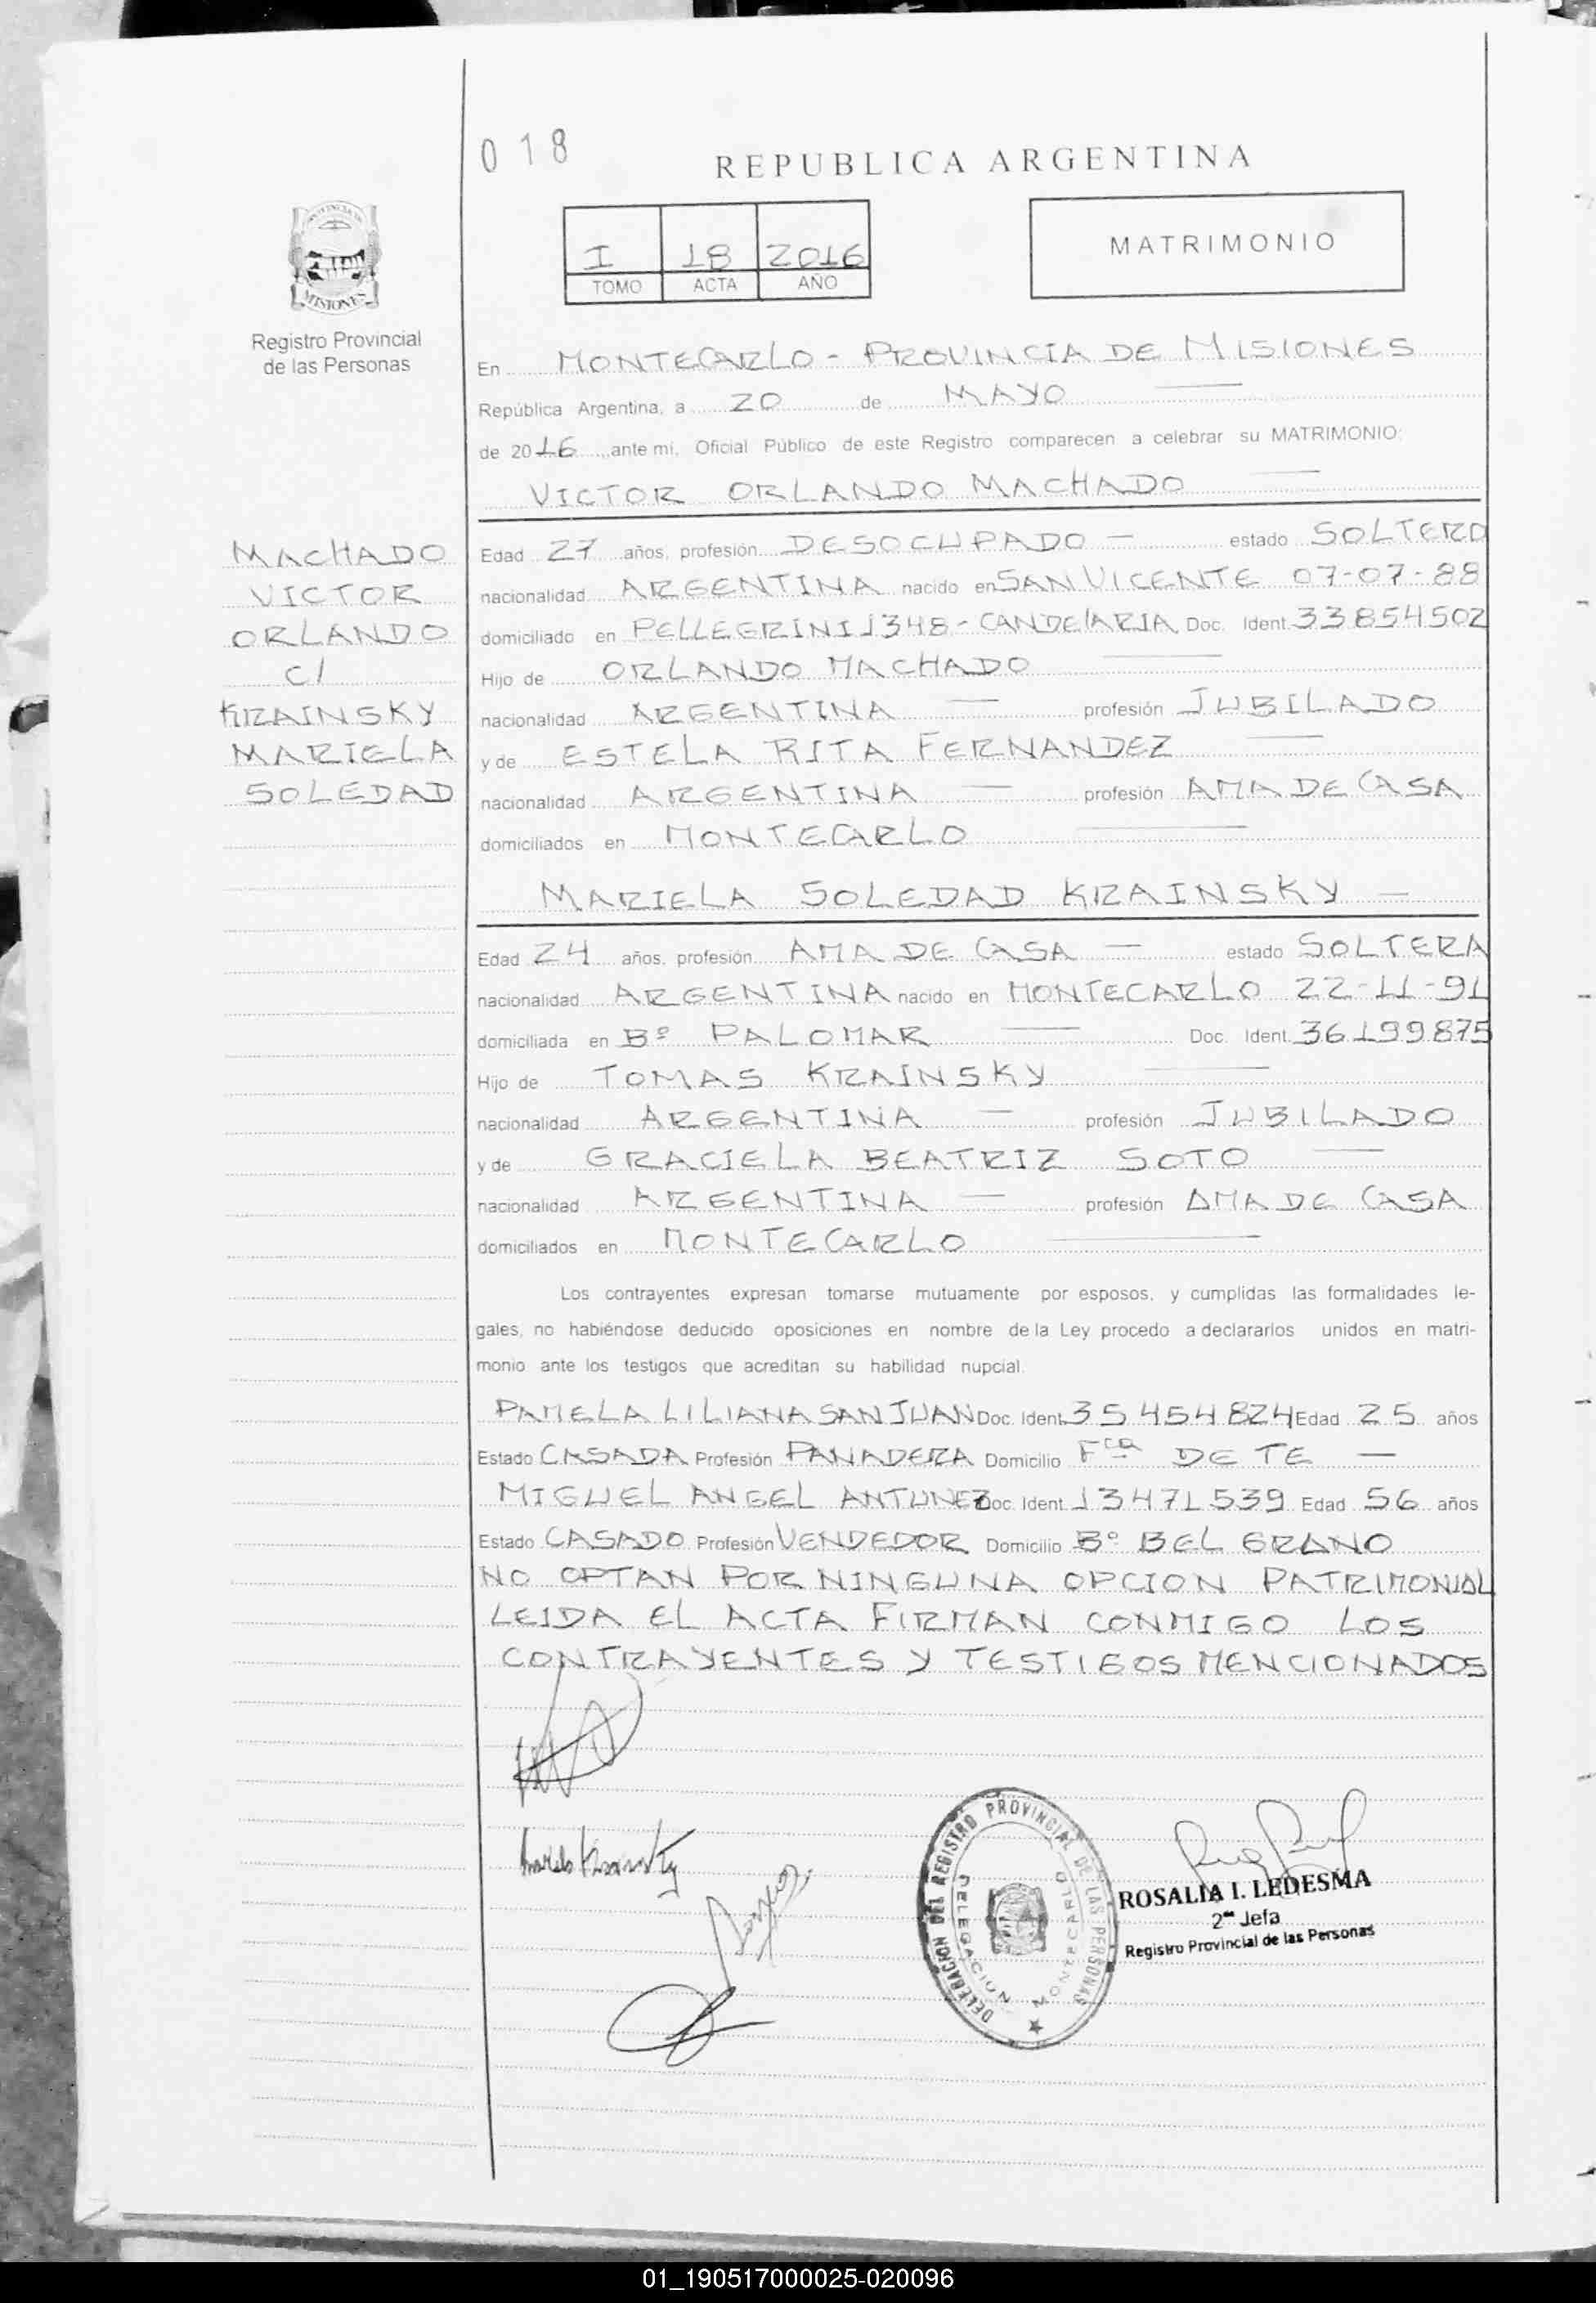 018
REPUBLICA ARGENTINA
I 18 2016
TOMO ACTA AÑO
MATRIMONIO
PROVINCIA DE
MISIONES
Registro Provincial
de las Personas
En MONTECARLO - PROVINCIA DE MISIONES
República Argentina, a 20 de MAYO
de 2016 ante mi, Oficial Público de este Registro comparecen a celebrar su MATRIMONIO:
VICTOR ORLANDO MACHADO
MACHADO
VICTOR
ORLANDO
C/
KRAINSKY
MARIELA
SOLEDAD
Edad 27 años, profesión DESOCUPADO - estado SOLTERO
nacionalidad ARGENTINA nacido en SAN VICENTE 07-07-88
domiciliado en PELLEGRINI 1348 - CANDELARIA Doc. Ident. 33854502
Hijo de ORLANDO MACHADO
nacionalidad ARGENTINA — profesión JUBILADO
y de ESTELA RITA FERNANDEZ
nacionalidad ARGENTINA — profesión AMA DE CASA
domiciliados en MONTECARLO
MARIELA SOLEDAD KRAINSKY —
Edad 24 años, profesión AMA DE CASA — estado SOLTERA
nacionalidad ARGENTINA nacido en MONTECARLO 22-11-91
domiciliada en Bº PALOMAR Doc. Ident. 36.199.875
Hijo de TOMAS KRAINSKY
nacionalidad ARGENTINA — profesión JUBILADO
y de GRACIELA BEATRIZ SOTO
nacionalidad ARGENTINA — profesión AMA DE CASA
domiciliados en MONTECARLO
Los contrayentes expresan tomarse mutuamente por esposos, y cumplidas las formalidades le-
gales, no habiéndose deducido oposiciones en nombre de la Ley procedo a declararlos unidos en matri-
monio ante los testigos que acreditan su habilidad nupcial.
PAMELA LILIANA SAN JUAN Doc. Ident. 35454824 Edad 25 años
Estado CASADA Profesión PANADERA Domicilio Fca DE TE —
MIGUEL ANGEL ANTUNEZ Doc. Ident. 13471539 Edad 56 años
Estado CASADO Profesión VENDEDOR Domicilio Bº BELGRANO
NO OPTAN POR NINGUNA OPCION PATRIMONIAL
LEIDA EL ACTA FIRMAN CONMIGO LOS
CONTRAYENTES Y TESTIGOS MENCIONADOS
DELEGACION DEL REGISTRO PROVINCIAL DE LAS PERSONAS
DELEGACION MONTECARLO
ROSALIA I. LEDESMA
2da Jefa
Registro Provincial de las Personas
01_190517000025-020096